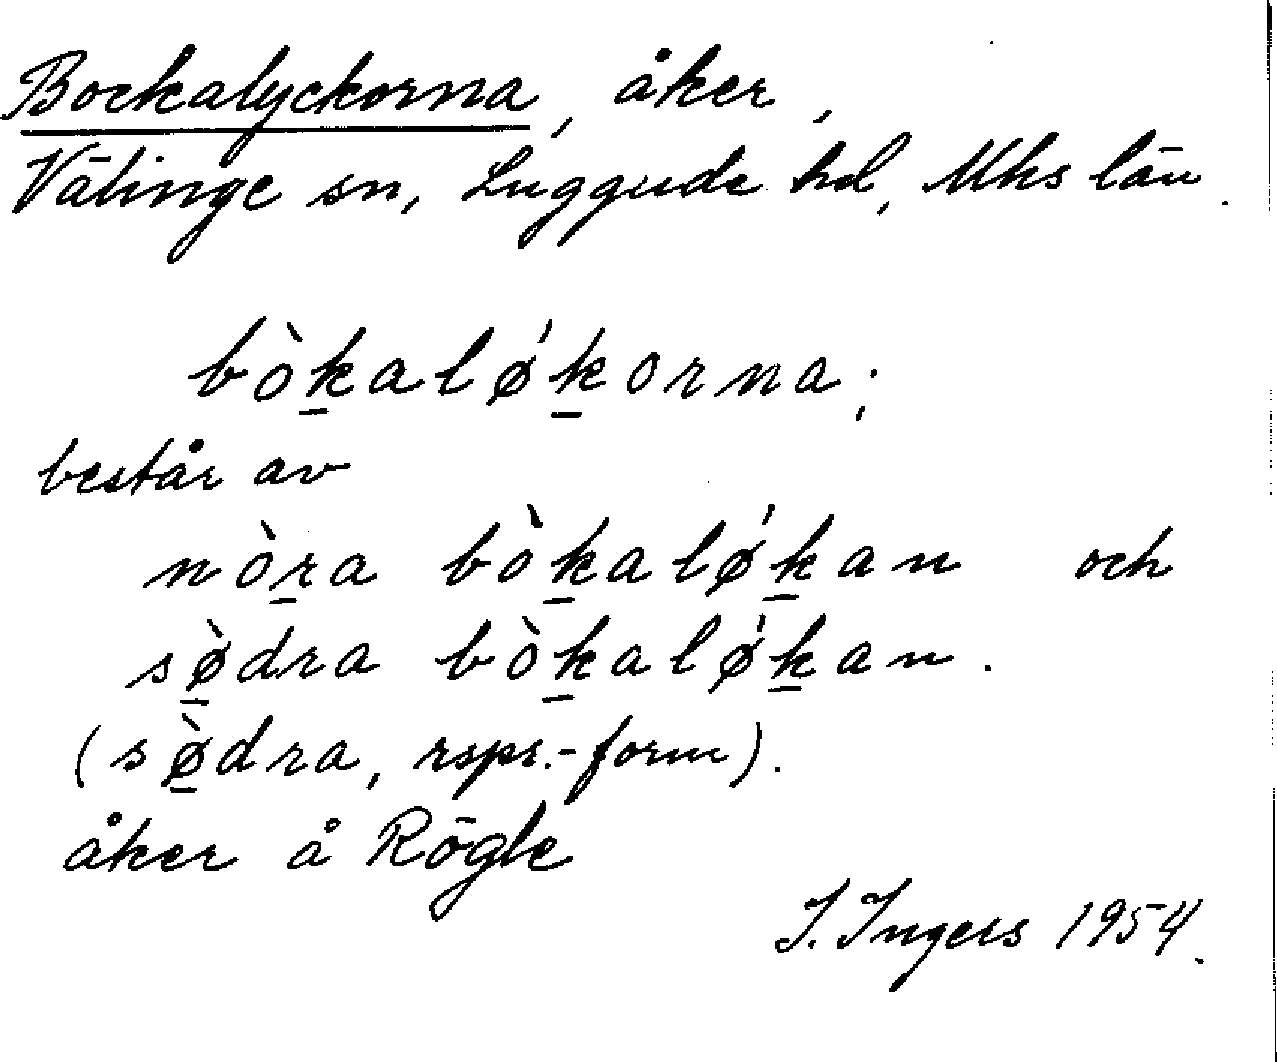 Bockalyckorna, åker,
Välinge sn, Luggude hd, Mhs län.
bòk̲alǿk̲orna;
består av
nòr̲a bòk̲alǿk̲an och
sø̲̀dra bòk̲alǿk̲an.
(sø̲̀dra, rspr.-form).
åker å Rögle
I. Ingers 1954.